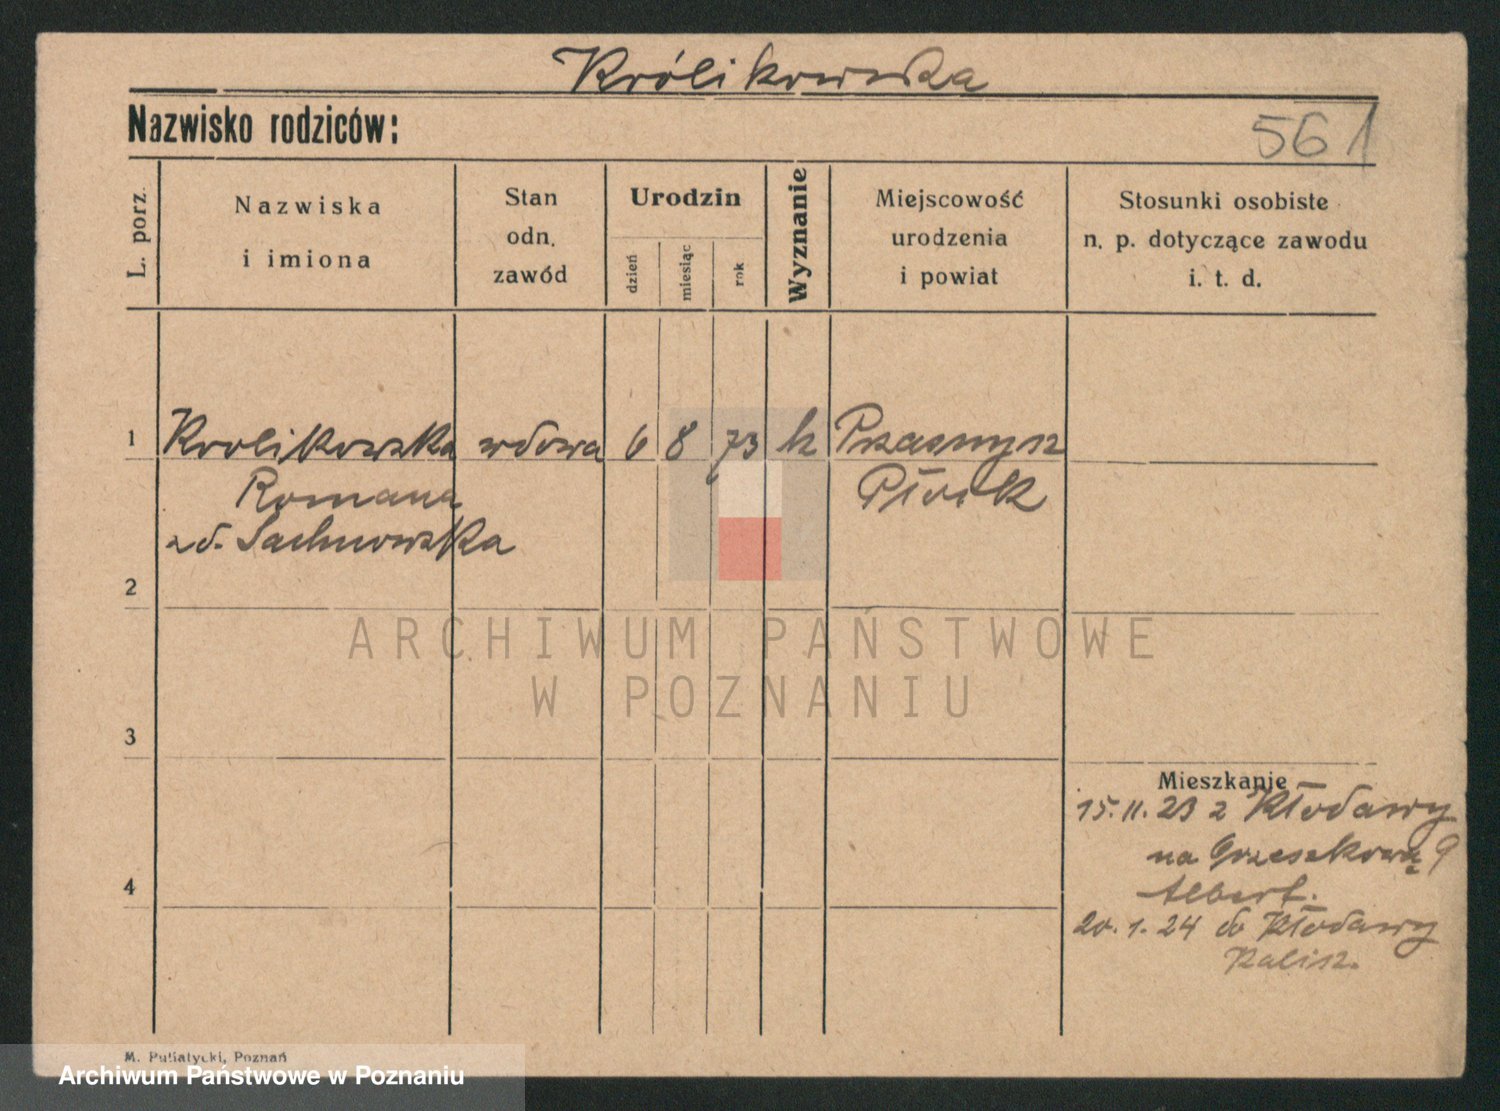 Królikowska
Nazwisko rodziców:
561
L. porz.
Nazwiska
i imiona
Stan
odn.
zawód
Urodzin
dzień
miesiąc
rok
Wyznanie
Miejscowość
urodzenia
i powiat
Stosunki osobiste
n. p. dotyczące zawodu
i. t. d.
1 Krolikowska wdowa 6 8 73 k Przasnysz
Romana Płock
zd. Sachnowska
2
3
4
ARCHIWUM PAŃSTWOWE
W POZNANIU
Mieszkanie
15.11.23 z Kłodawy
na 9
Albert.
20.1.24 do Kłodawy
Kalisz.
M. Putiatycki, Poznań
Archiwum Państwowe w Poznaniu